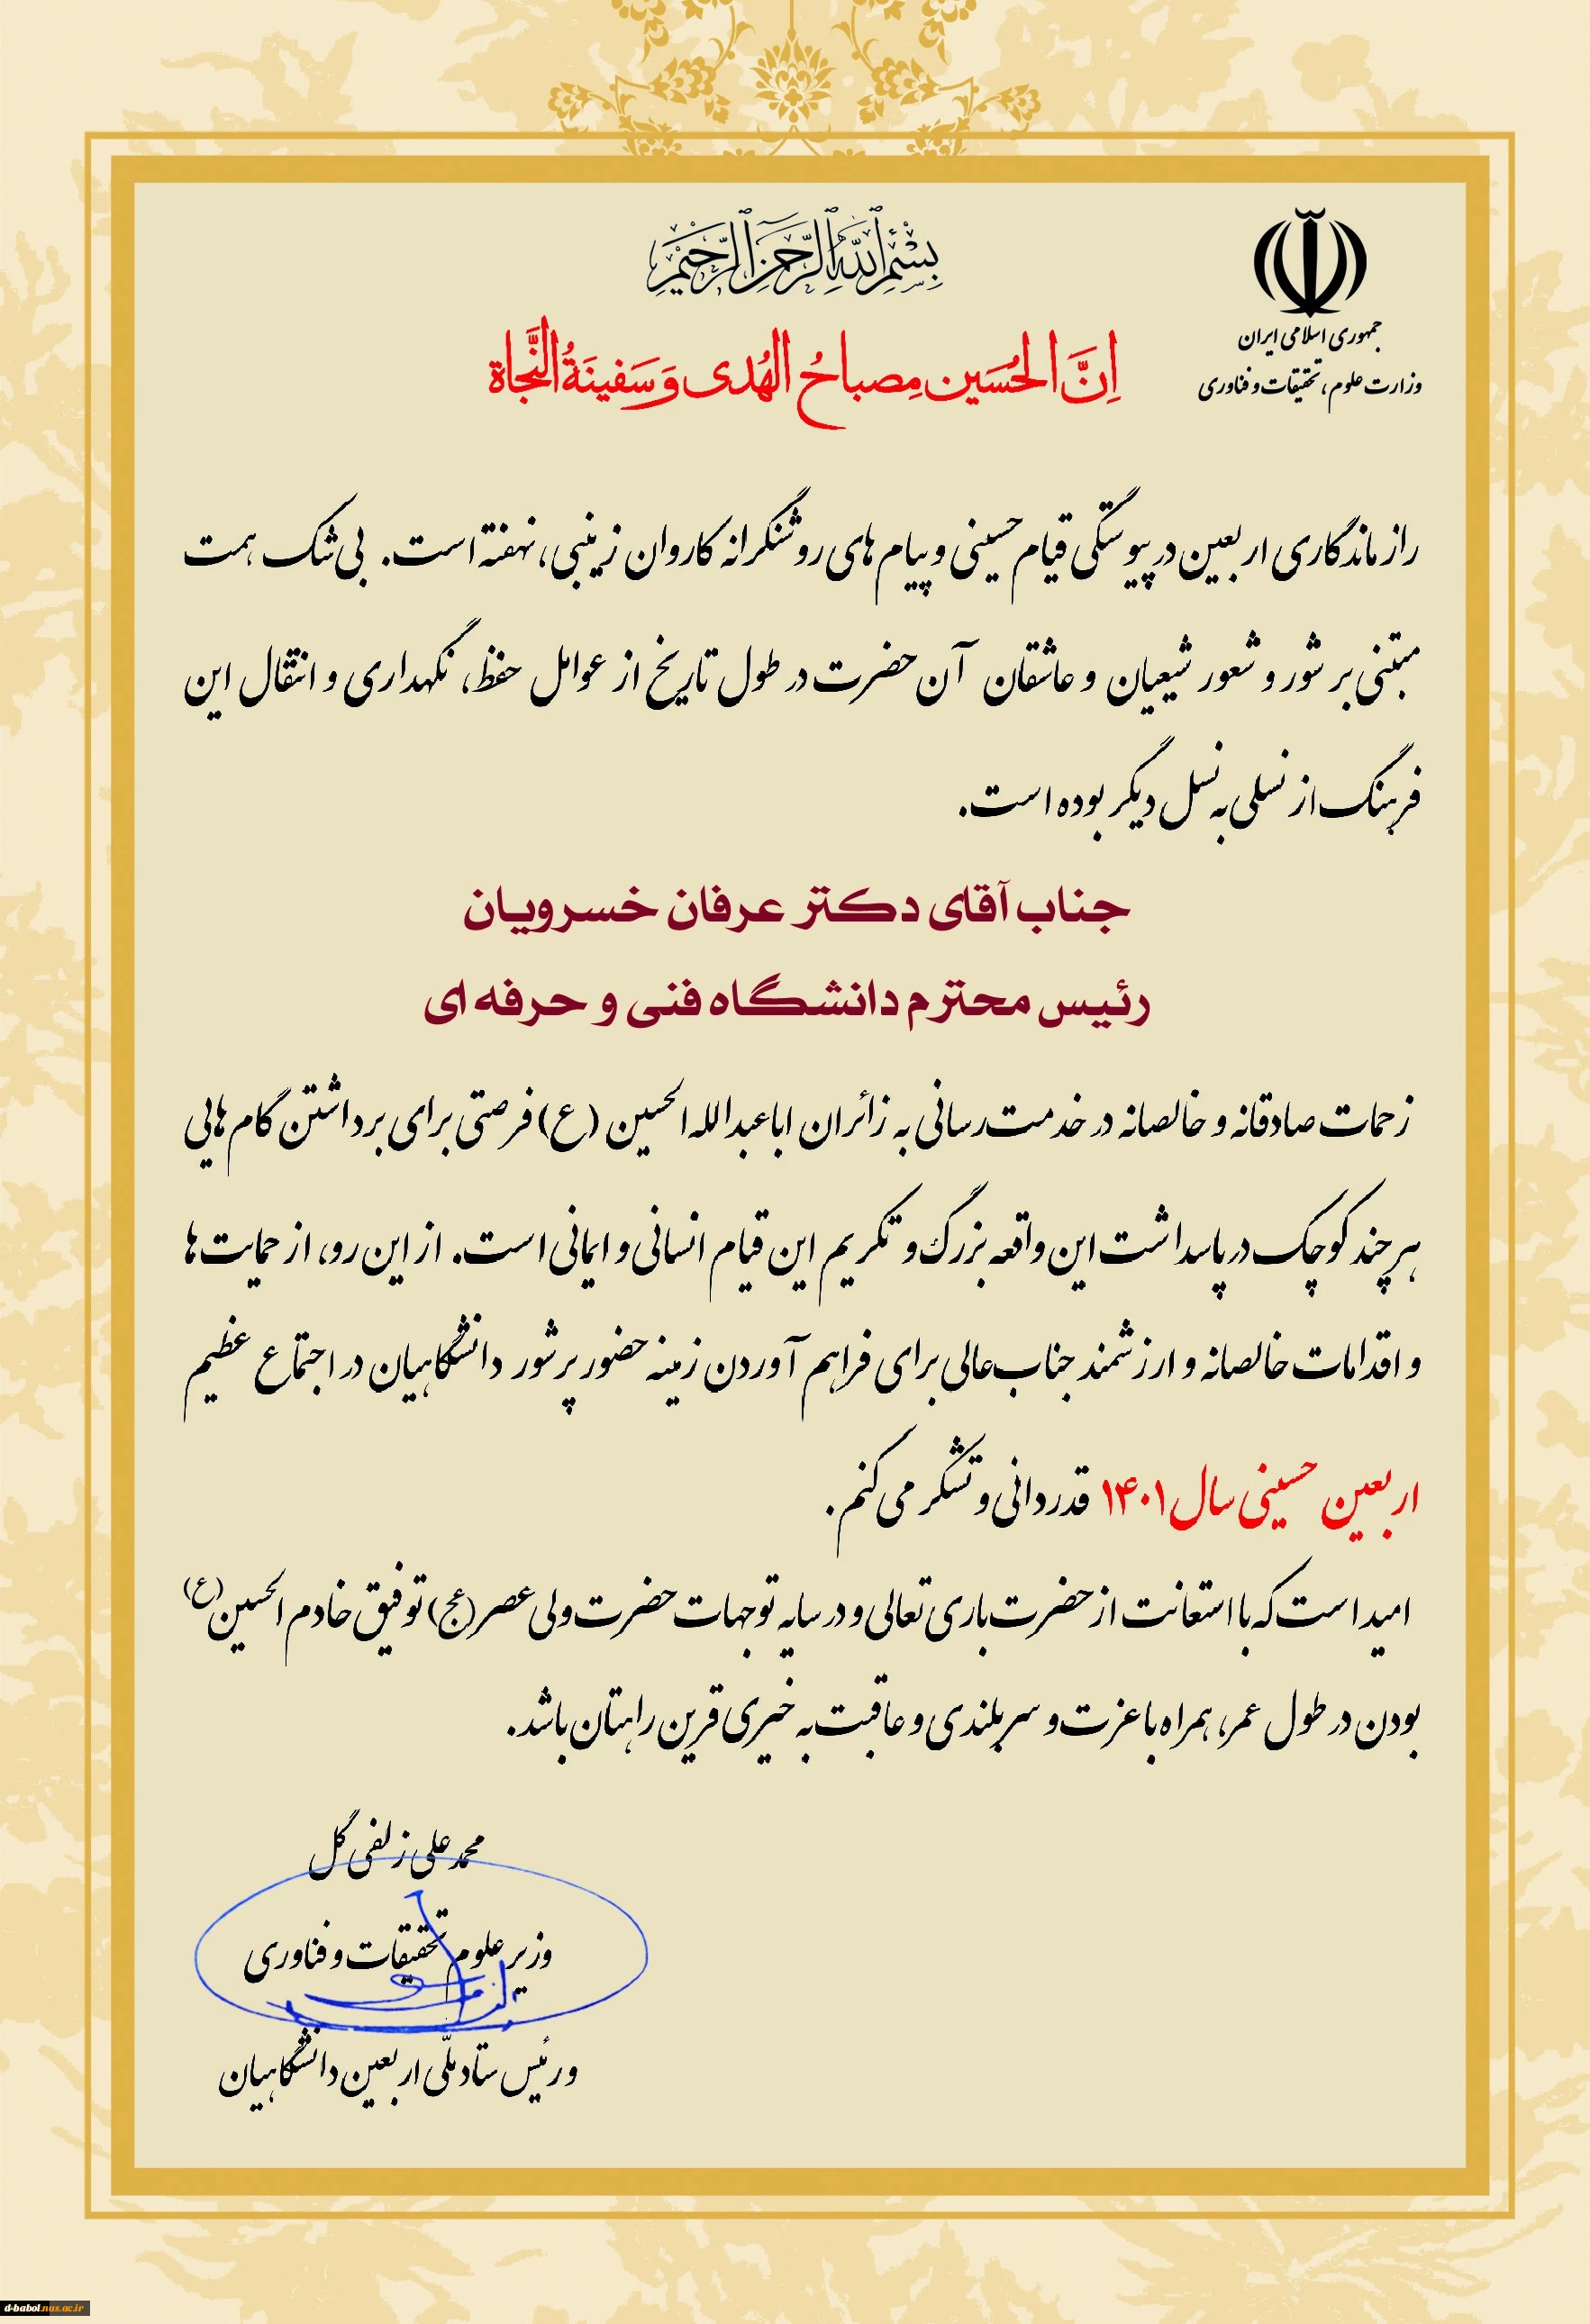 بِسْمِ اللَّهِ الرَّحْمَنِ الرَّحِيمِ
جمهوری اسلامی ایران
وزارت علوم، تحقیقات و فناوری
اِنَّ الحُسَین مِصباحُ الهُدی وَ سَفینَةُ النَّجاة
راز ماندگاری اربعین در پیوستگی قیام حسینی و پیام های روشنگرانه کاروان زینبی، نهفته است. بی شک همت
مبتنی بر شور و شعور شیعیان و عاشقان آن حضرت در طول تاریخ از عوامل حفظ، نگهداری و انتقال این
فرهنگ از نسلی به نسل دیگر بوده است.
جناب آقای دکتر عرفان خسرویان
رئیس محترم دانشگاه فنی و حرفه ای
زحمات صادقانه و خالصانه در خدمت رسانی به زائران اباعبدالله الحسین (ع) فرصتی برای برداشتن گام هایی
هر چند کوچک در پاسداشت این واقعه بزرگ و تکریم این قیام انسانی و ایمانی است. از این رو، از حمایت ها
و اقدامات خالصانه و ارزشمند جناب عالی برای فراهم آوردن زمینه حضور پرشور دانشگاهیان در اجتماع عظیم
اربعین حسینی سال ۱۴۰۱ قدردانی و تشکر می کنم.
امید است که با استعانت از حضرت باری تعالی و در سایه توجهات حضرت ولی عصر (عج) توفیق خادم الحسین (ع)
بودن در طول عمر، همراه با عزت و سربلندی و عاقبت به خیری قرین راهتان باشد.
محمد علی زلفی گل
وزیر علوم تحقیقات و فناوری
و رئیس ستاد ملّی اربعین دانشگاهیان
d-babol.nus.ac.ir